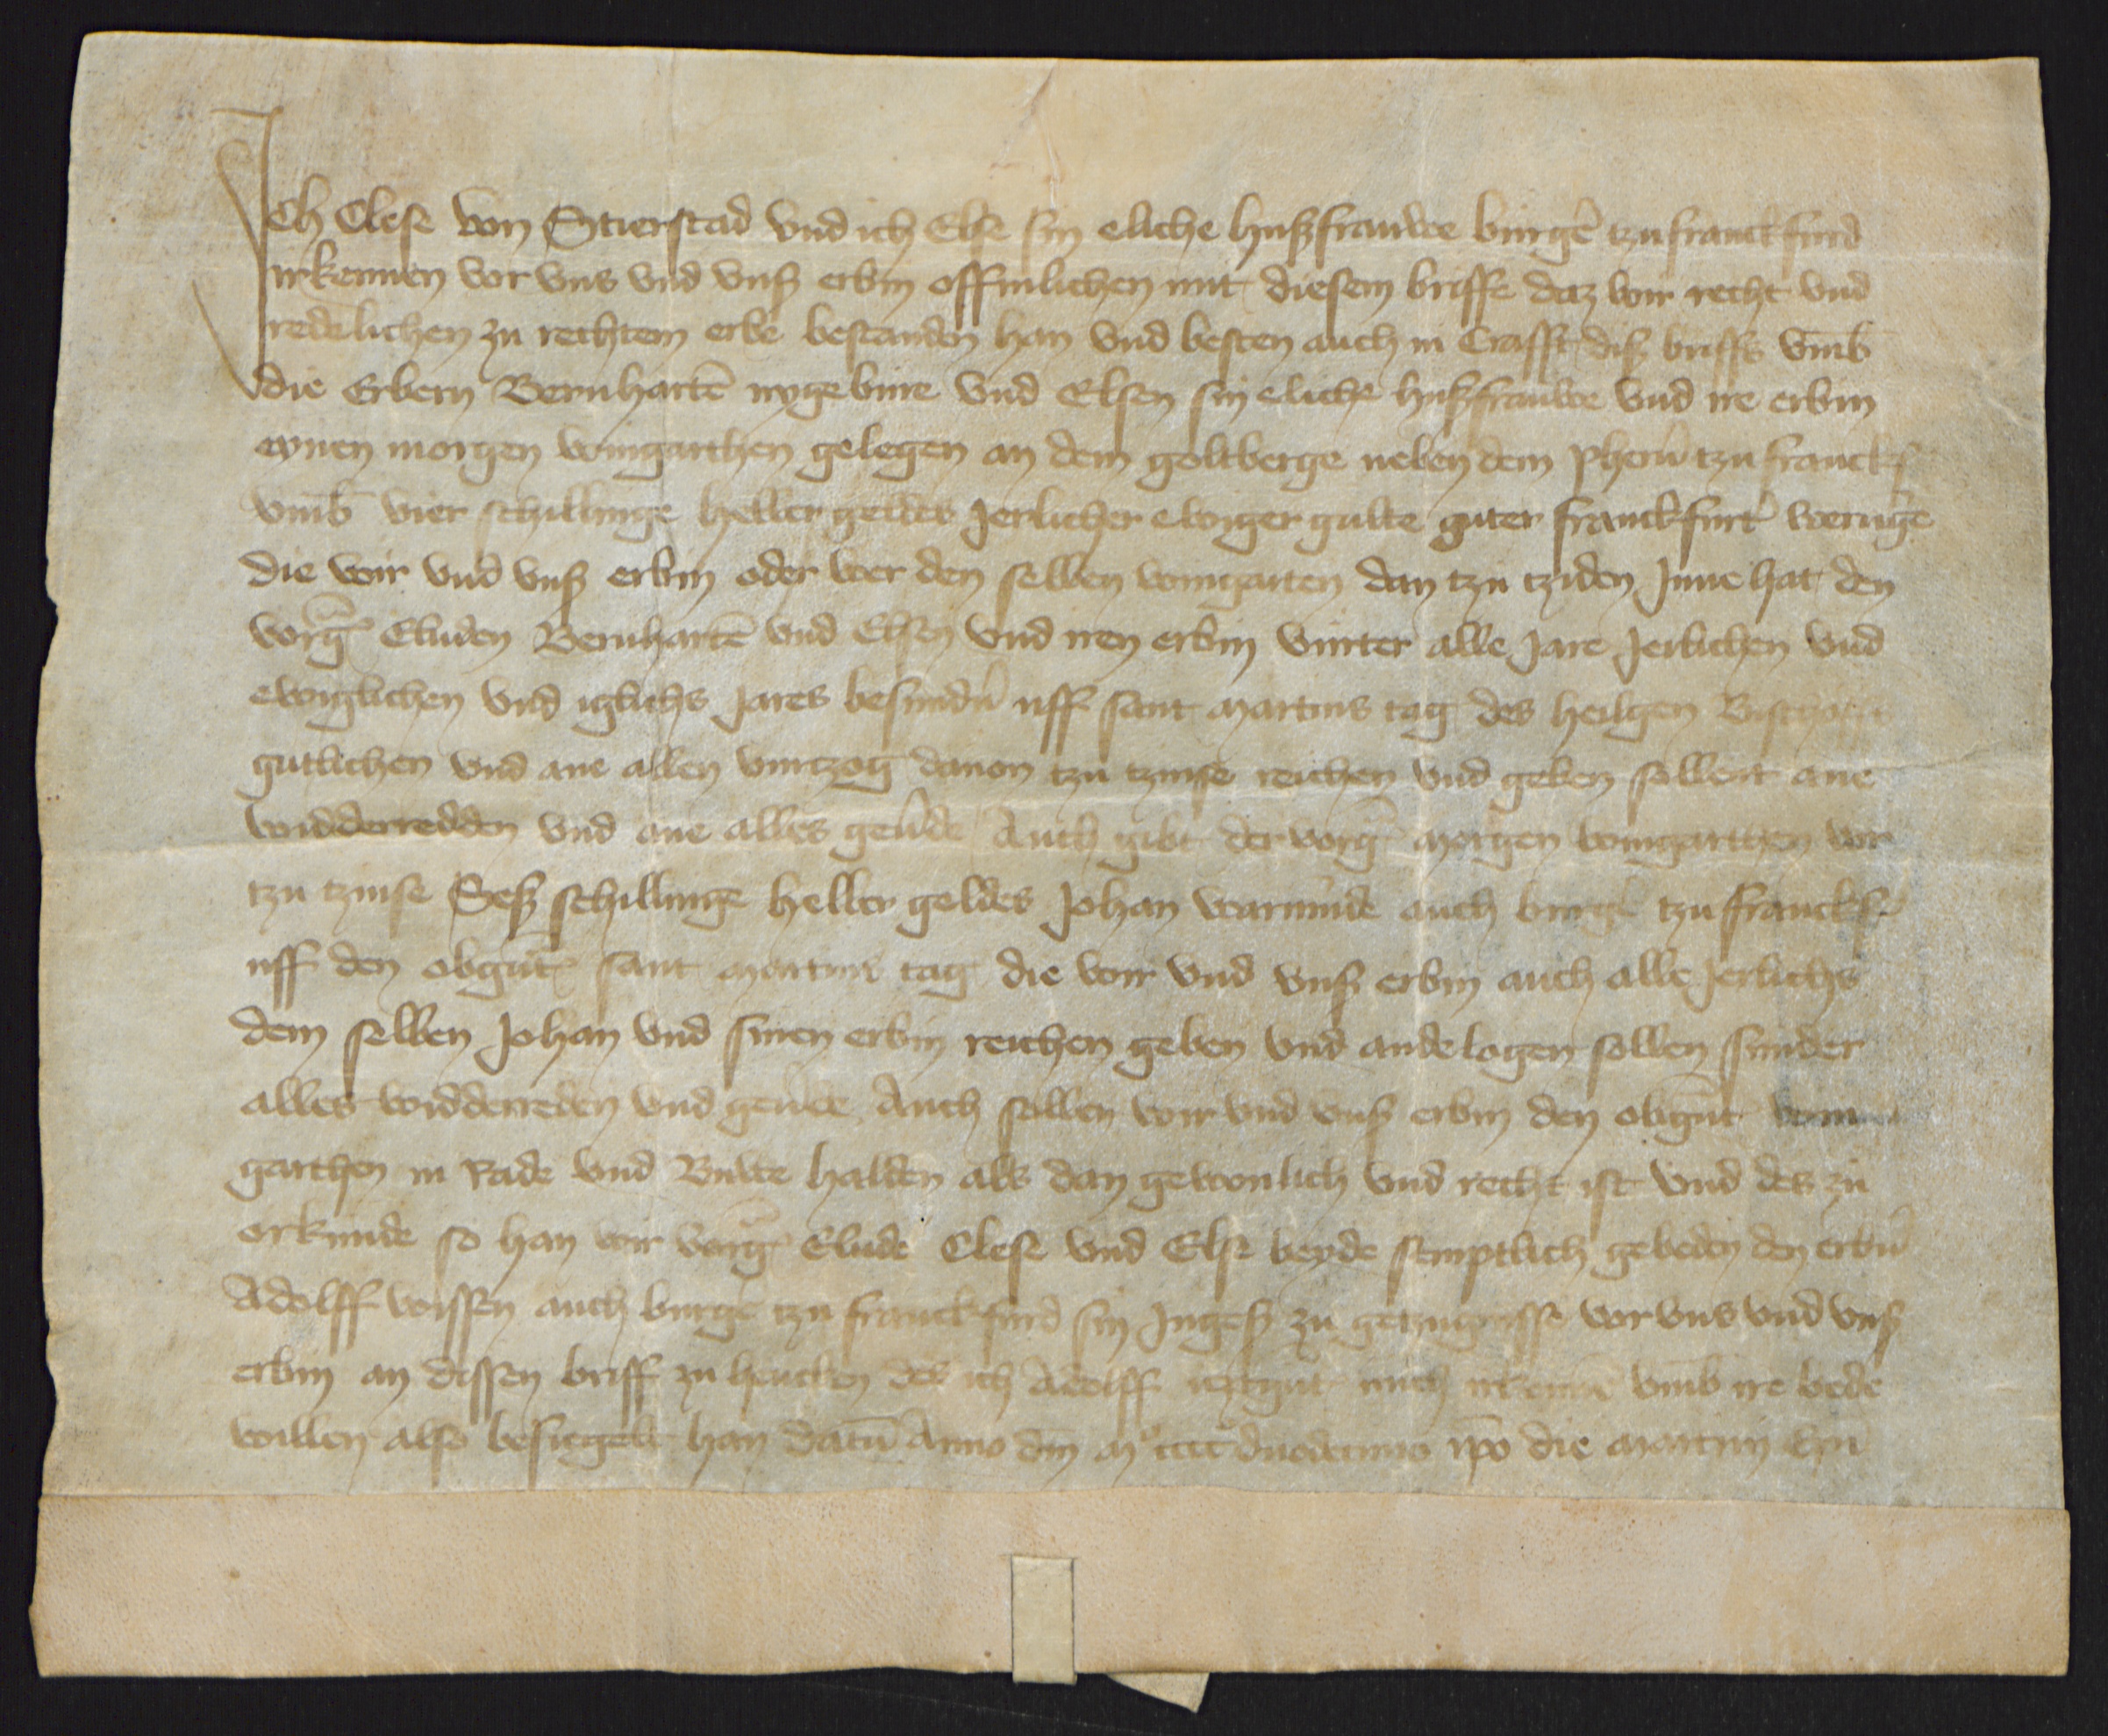 Ich Clese von Stierstad und ich Else sin eliche hußfrauwe burgē tzu franckfurd
irkennen vor uns und unß erbin offinlichen mit diesem briffe daz wir recht und
redelichen zu rechtem erbe bestanden han und besten auch in Crafft diß briffs umb
die Erbern Bernhartē nygebure und Elsen sin eliche hußfrauwe und ire erbin
eynen morgen wingarthen gelegen an dem goltberge neben dem phern̄ tzu franckf
umb vier schillinge heller geldes Jerlicher ewiger gulte guter franckfurt̄ werunge
die wir und unß erbin oder wer den selben wingarten dan tzu tziden Inne hat den
vorḡ Eluden Bernhartē und Elsen und iren erbin vurter alle Jare Jerlichen und
ewiglichen und iglichs Jares besundn̄ uff sant martins tag des heilgen Bischoffs
gutlichen und ane allen vurtzog davon tzu tzinse reichen und geben sollent ane
widderredden und ane alles gev̄de Auch gibt der vorḡ morgen wingarthen vor
tzu tzinse Seß schillinge heller geldes Johan warmūde auch burgē tzu franckf
uff den obgn̄t sant martins tag die wir und unß erbin auch alle Jerlichs
dem selben Johan und sinen erbin reichen geben und andelogen sollen sunder
alles widderreden und gev̄de Auch sollen wir und unß erbin den obgn̄t win
garthen in Rade und Buwe halden als dan gewonlich und recht ist und des zu
orkunde so han wir vorḡ Elude Clese und Else beyde semptlich gebeden den erbn̄
Adolff wissen auch burgē tzu franckfurd sin Ingeß zu getzugnisse vor uns und unß
erbin an dissen briff zu hencken des ich Adolff itzgn̄t mich irkennē umb ire bede
willen also besiegelt han datū Anno dn̄i mo cccc duodecimo ip̄o die martini ep̄i